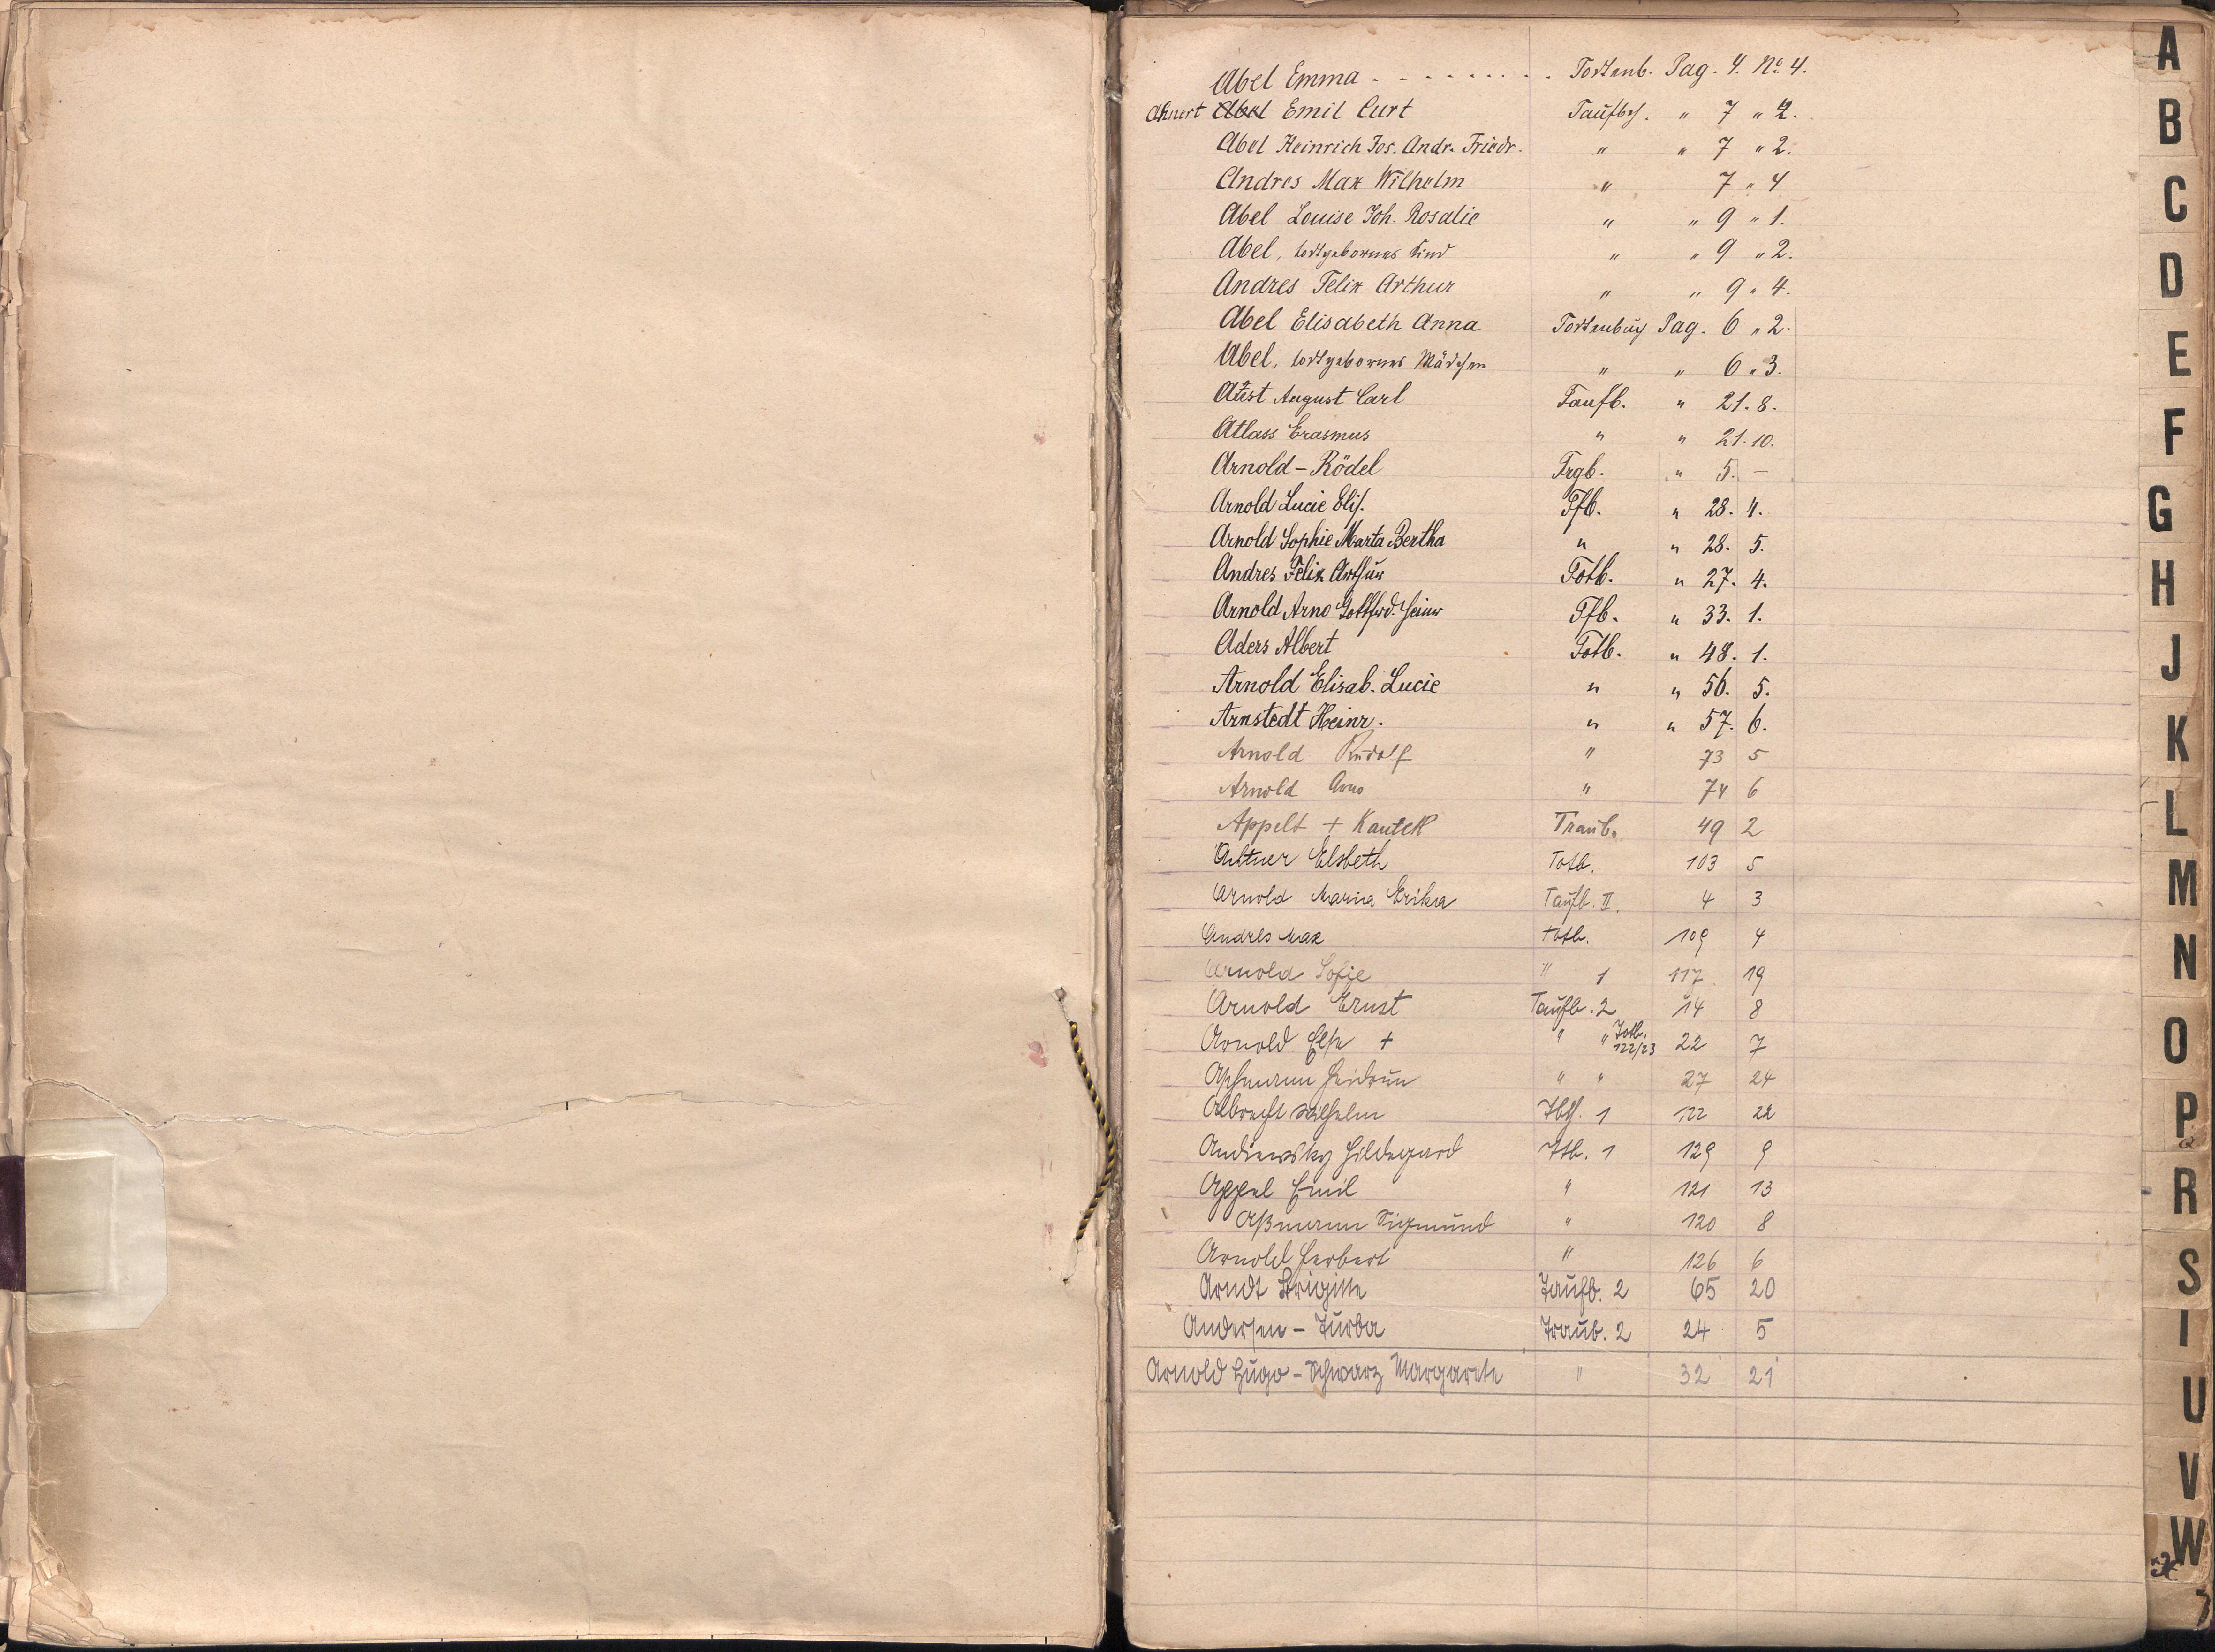 Abel Emma - - - - - - - - - . Todtenb. Pag. 4. No. 4.
Ahnert Abel Emil Curt Taufbch. " 7 " 2.
Abel Heinrich Jos. Andr. Friedr. " " 7 " 2.
Andres Max Wilhelm " 7 " 4
Abel Louise Joh. Rosalie " " 9 " 1.
Abel, todtgebornes Kind " " 9 " 2.
Andres Felix Arthur " " 9 " 4.
Abel Elisabeth Anna Todtenbuch Pag. 6 " 2.
Abel, todtgebornes Mädchen " " 6 " 3.
Aust August Carl Taufb. " 21. 8.
Atlass Erasmus " " 21. 10.
Arnold - Rödel Trgb. " 5. -
Arnold Lucie Elis. Tfb. " 28. 4.
Arnold Sophie Marta Bertha " " 28. 5.
Andres Felix Arthur Totb. " 27. 4.
Arnold Arno Gottfrd. Heinr Tfb. " 33. 1.
Aders Albert Totb. " 48. 1.
Arnold Elisab. Lucie " " 56. 5.
Arnstedt Heinr. " " 57. 6.
Arnold Rudolf " 73 5
Arnold Arno " 74 6
Appelt + Kautek Traub. 49 2
Elsbeth Totb. 103 5
Arnold Maria Erika Taufb. II. 4 3
Andres Max Totb. 109 4
Arnold Sofie " 1 117 19
Arnold Ernst Taufb. 2 14 8
Arnold Else + " " Totb. 122/23 22 7
Heidrun " " 27 24
Albrecht Wilhelm 1 122 22
Andrewsky Hildegard Ttb. 1 129 9
Appel Emil " 121 13
Aßmann Sigmund " 120 8
Arnold Herbert " 126 6
Arndt Brigitte Taufb. 2 65 20
Andersen - Turba Traub. 2 24 5
Arnold Hugo - Schwarz Margarete " 32 21
A
B
C
D
E
F
G
H
J
K
L
M
N
O
P
Q
R
S
U
V
W